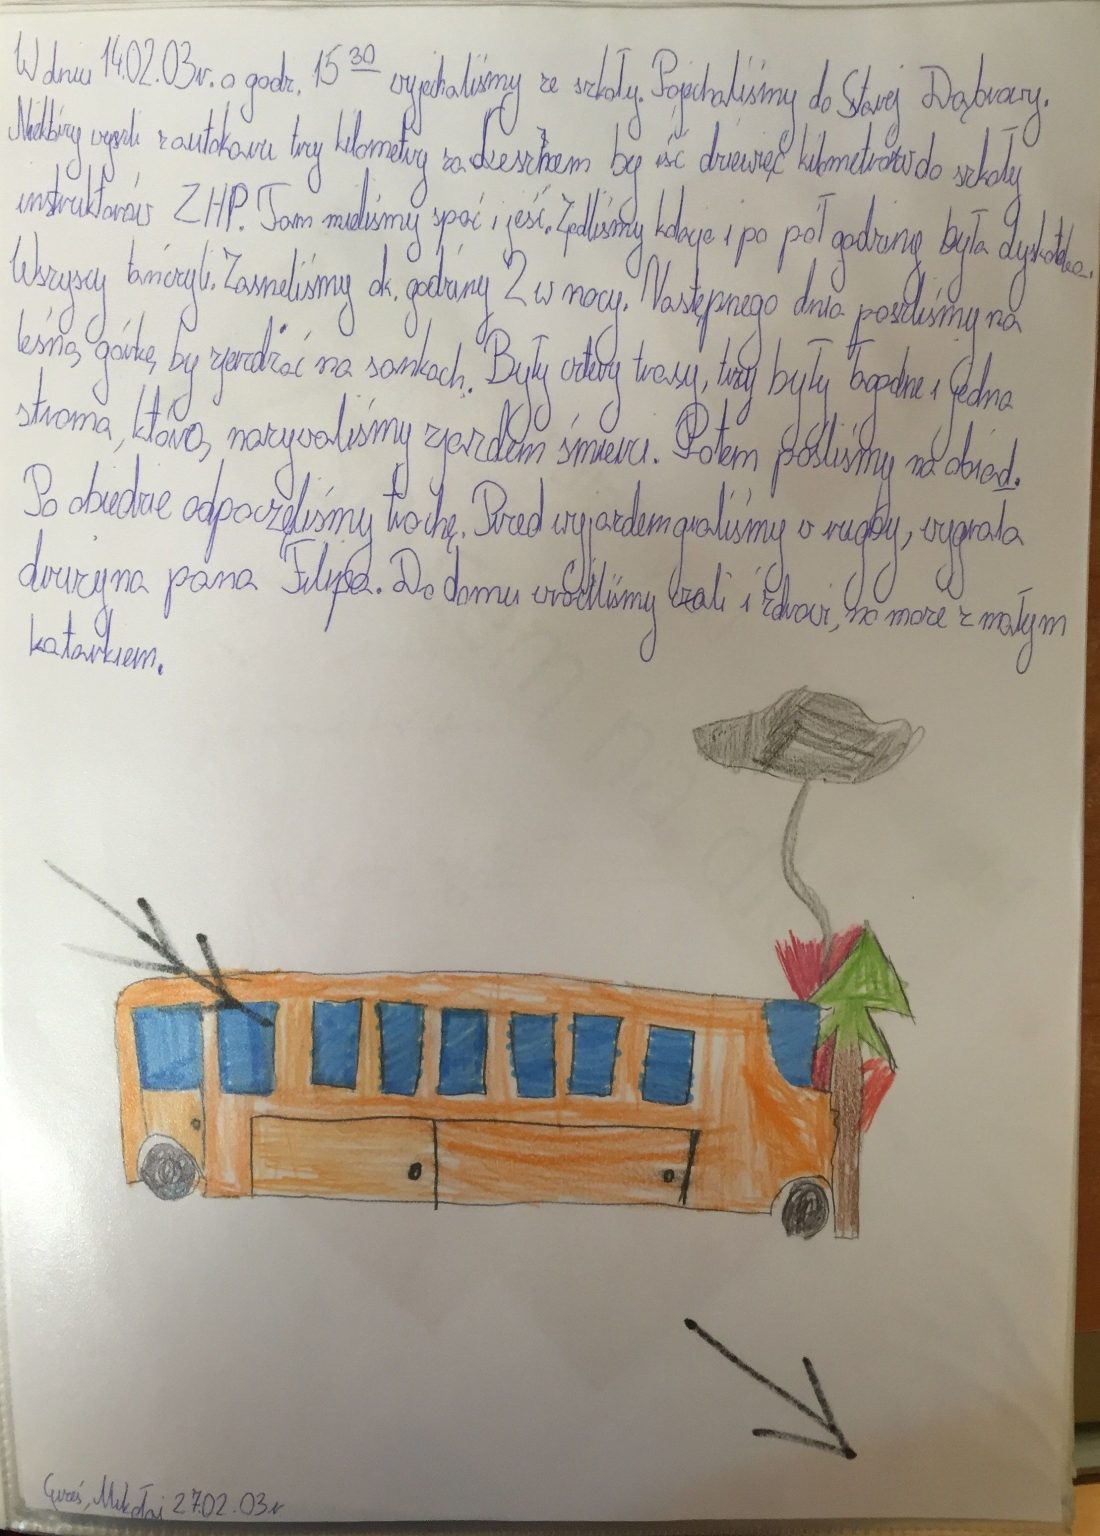 W dniu 14.02.03r. o godz. 15 30 wyjechaliśmy ze szkoły. Pojechaliśmy do Starej Dąbrowy.
Niektórzy wyszli z autokaru trzy kilometry za by iść dziewięć kilometrów do szkoły
instruktorów ZHP. Tam mieliśmy spać i jeść. Zjedliśmy kolacje i po pół godziny była dyskoteka.
Wszyscy tańczyli. Zasneliśmy ok. godziny 2 w nocy. Następnego dnia poszliśmy na
leśną górkę by zjeżdżać na sankach. Były cztery trasy, trzy były łagodne i jedna
stroma, którą nazywaliśmy zjazdem śmierci. Potem pośliśmy na obiad.
Po obiedzie odpoczęliśmy trochę. Przed wyjazdem graliśmy w rugby, wygrała
drużyna pana Filipa. Do domu wróciliśmy cali i zdrowi, no może z małym
katarkiem.
Mikołaj 27.02.03r